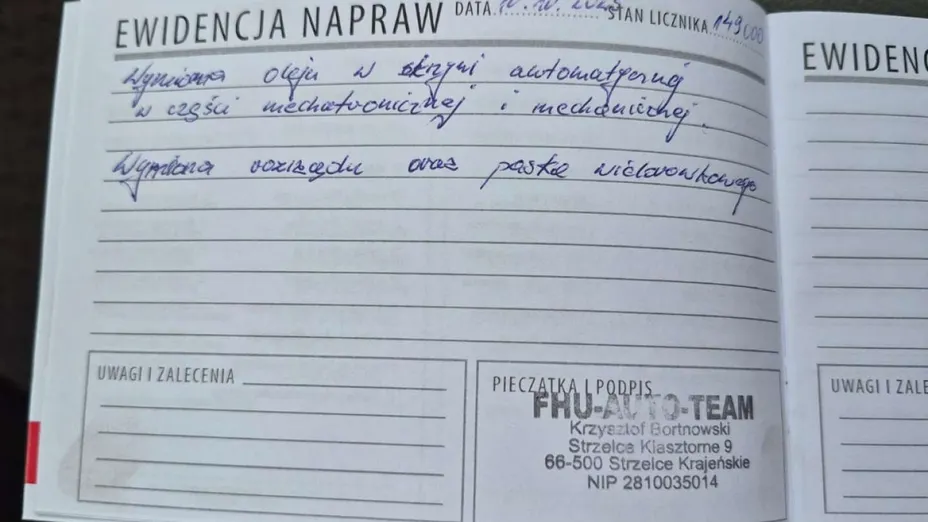 EWIDENCJA NAPRAW DATA STAN LICZNIKA 149000
Wymiana oleju w skrzyni automatycznej
w części mechatronicznej i mechanicznej.
Wymiana rozrządu oraz paska wielorowkowego
UWAGI I ZALECENIA
PIECZĄTKA I PODPIS
FHU-AUTO-TEAM
Krzysztof Bortnowski
Strzelce Klasztorne 9
66-500 Strzelce Krajeńskie
NIP 2810035014
EWIDENC
UWAGI I ZALE